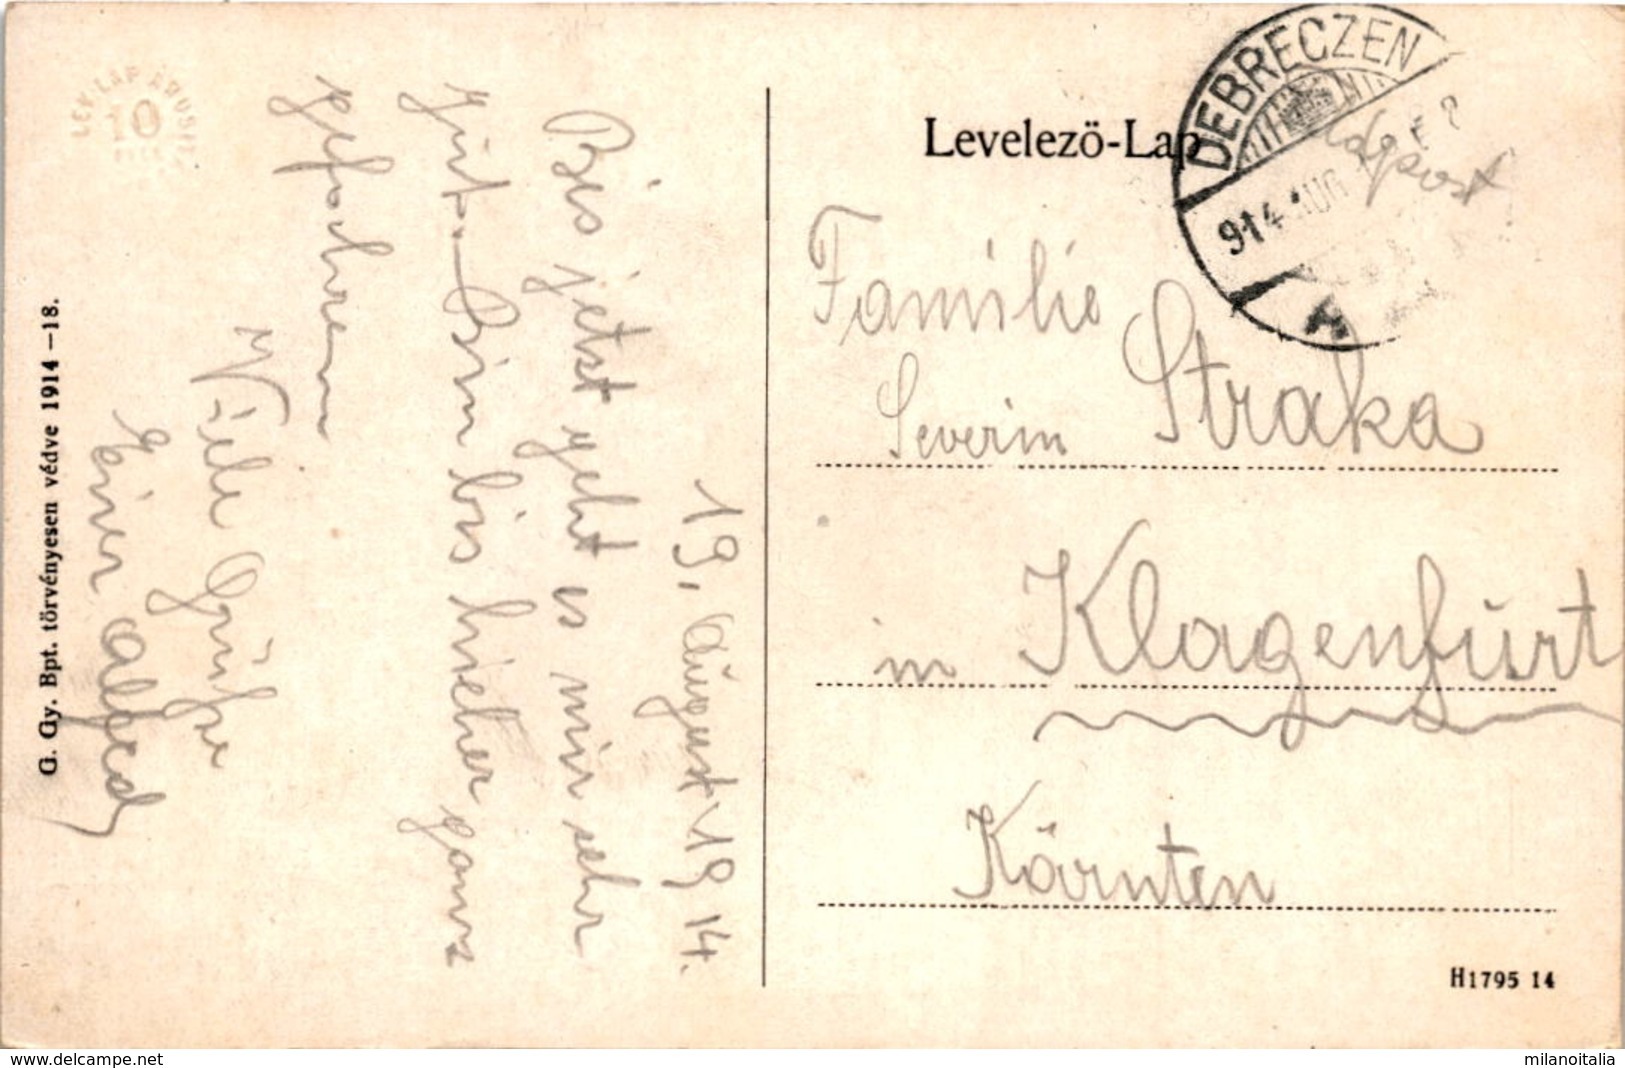 19. August 1914.
Bis jetzt geht es mir sehr
gut. Bin bis hieher ganz
gefahren
Viele Grüße
Euer Alfred
G. Gy. Bpt. törvényesen védve 1914—18.
LEV. LAP ÁRUS
10
Levelezö-Lap
DEBRECZEN
914 AUG
Feldpost
Familie
Severin Straka
in Klagenfurt
Kärnten
H1795 14
www.delcampe.net
milanoitalia